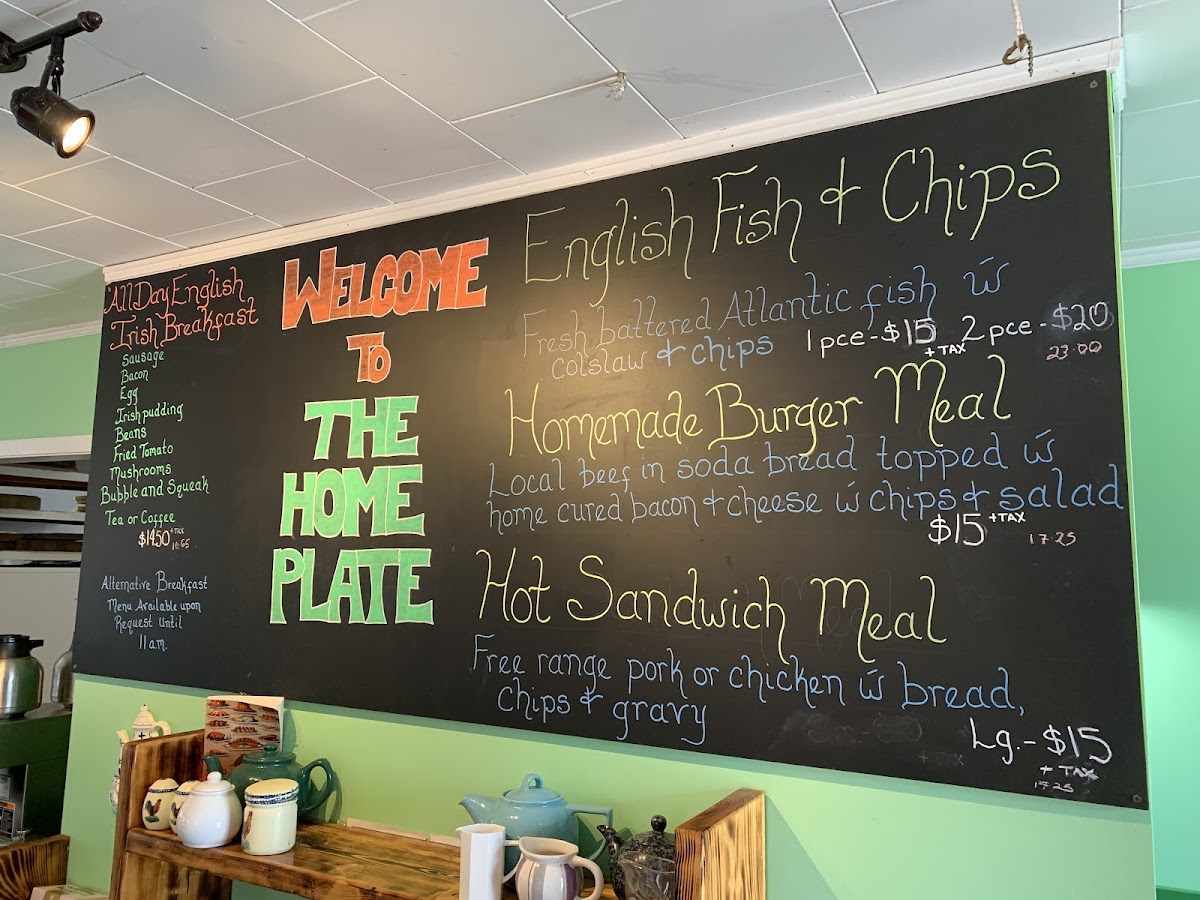 All Day English
Irish Breakfast
Sausage
Bacon
Egg
Irish pudding
Beans
Fried Tomato
Mushrooms
Bubble and Squeak
Tea or Coffee
$14.50 + TAX
16.65
Alternative Breakfast
Menu Available upon
Request Until
11 a.m.
WELCOME
TO
THE
HOME
PLATE
English Fish & Chips
Fresh battered Atlantic fish w
colslaw & chips 1 pce - $15 2 pce - $20
+ TAX 23.00
Homemade Burger Meal
Local beef in soda bread topped w
home cured bacon & cheese w chips & salad
$15 + TAX 17.25
Hot Sandwich Meal
Free range pork or chicken w bread,
chips & gravy
Lg. - $15
+ TAX
17.25